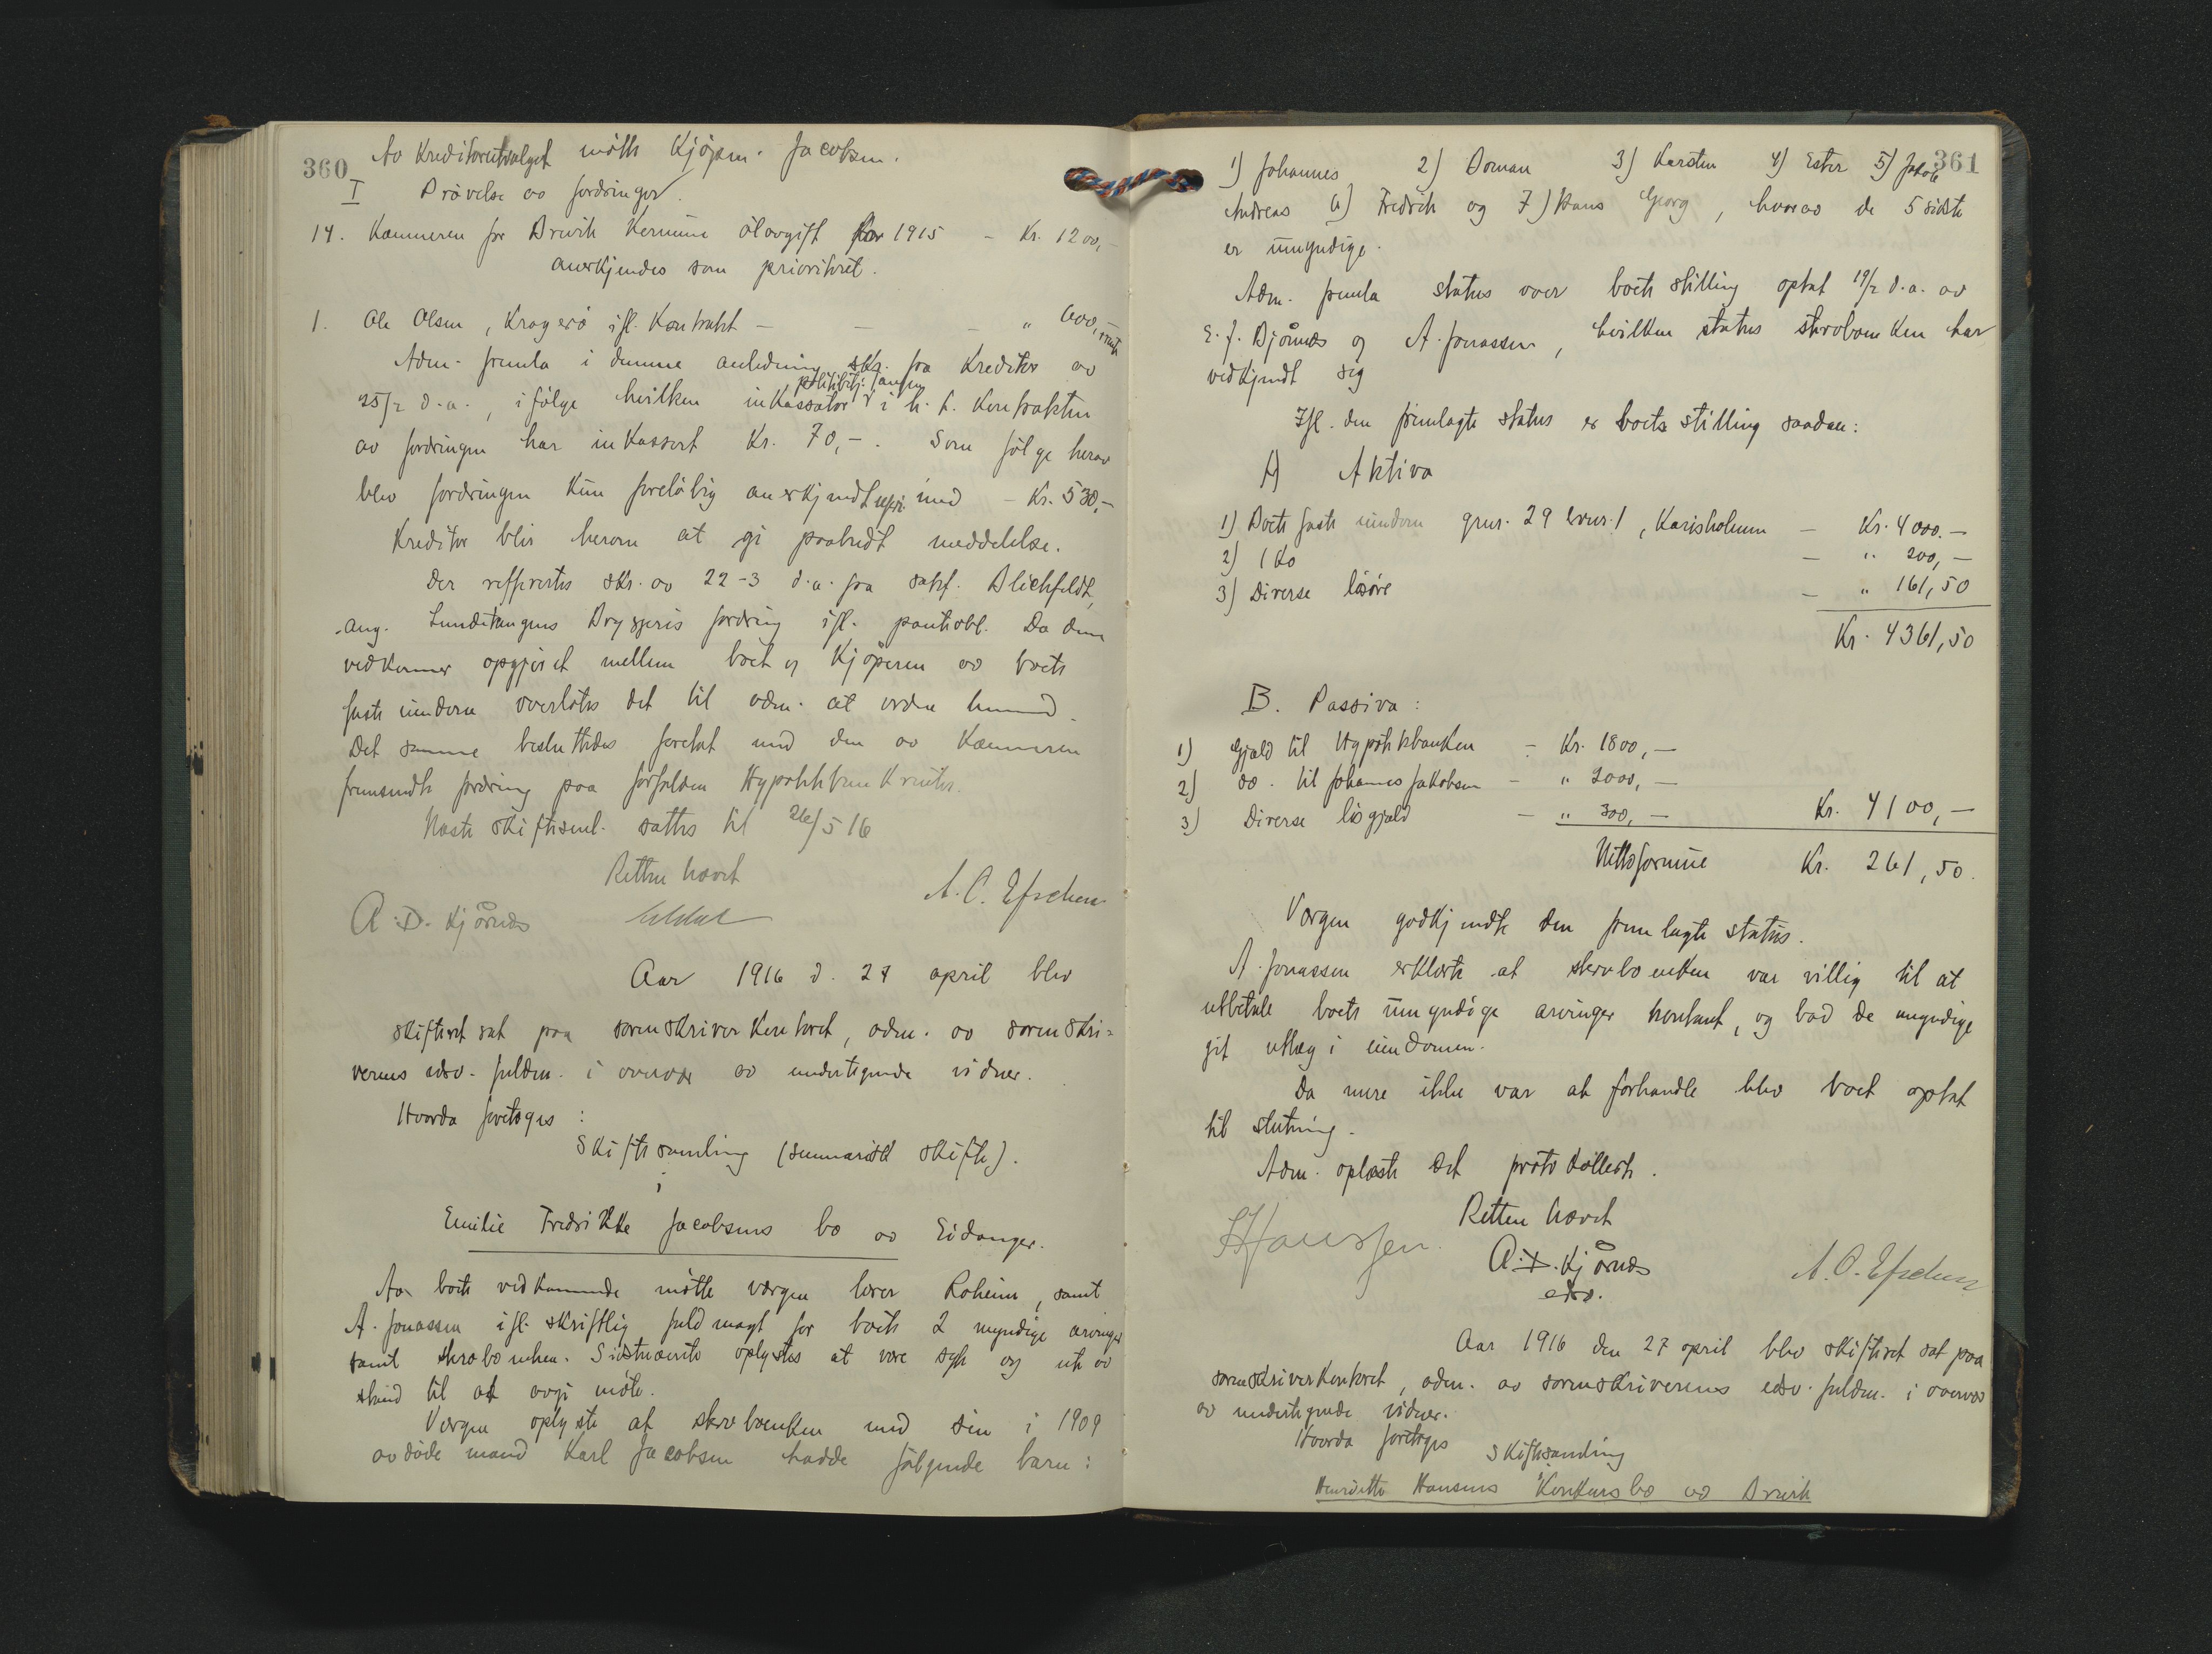 360
Av Kreditorutvalget mötte Kjöpm. Jacobsen.
I Prövelse av fordringer.
14. Kæmneren for Brevik Kommune ölavgift for 1915 - Kr. 1200,-
anerkjendes som prioritert.
1. Ole Olsen, Kragerö ifl. Kontrakt - - - " 600,- +rente
Adm. fremla i denne anledning skr. fra Kreditor av
25/2 d.a., ifölge hvilken inkassator i h. t. Kontrakten
av fordringen har inkassert Kr. 70,-. Som fölge herav
blev fordringen kun forelöbig anerkjendt med - Kr. 530,-
Kreditor blir herom at gi paabudt meddelelse.
Der reffertes skr. av 22-3 d.a. fra sakf. Blichfeldt,
ang. Lundetangens Bryggeris fordring ifl. panteobl. Da den
vedkommer opgjöret mellem boet og Kjöperen av boets
faste eiendom overlötes det til adm. at ordne hermed.
Det samme besluttedes foretat med den av Kæmneren
fremsendte fordring paa forfalden Hypothekbankrenter.
Næste skiftesaml. sattes til 26/5 16
Retten hævet
A. D. Kjörnæs A. O. Efschen
Aar 1916 d. 27 april blev
skifteret sat paa sorenskriverkontoret, adm. av sorenskri=
verens edsv. fuldm. i overvær av undertegnede vidner.
Hvorda foretoges:
Skiftesamling (summarisk skifte).
i
Emilie Fredrikke Jacobsens bo av Eidanger.
Av boets vedkommende mötte værgen lærer Roheim, samt
A. Jonassen ifl. skriftlig fuldmagt for boets 2 myndige arvinger
samt skrøboenken. Sidstnævnte oplystes at være syk og ute av
stand til at avgi möte.
Værgen oplyste at skrøboenken med sin i 1909
avdöde mand Karl Jacobsen hadde fölgende barn:
361
1) Johannes 2) Dorman 3) Karsten 4) Ester 5) Jakob
Andreas 6) Fredrik og 7) Hans Georg, hvorav de 5 sidste
er umyndige.
Adm. fremla status over boets stilling optat 19/2 d.a. av
E. J. Björnæs og A. Jonassen, hvilken status skrøboenken har
vedkjendt sig
Ifl. den fremlagte status er boets stilling saadan:
A) Aktiva
1) Boets faste eiendom gnr. 29 brnr. 1, Karisholmen - Kr. 4000.-
2) 1 Ko - " 200,-
3) Diverse lösöre - " 161,50
Kr. 4361,50
B. Passiva:
1) Gjæld til Hypothekbanken - Kr. 1800,-
2) do. til Johannes Jakobsen - " 2000,-
3) Diverse lösgjæld - " 300,- Kr. 4100,-
Nettoformue Kr. 261,50.
Værgen godkjendte den fremlagte status.
A. Jonassen erklærte at skrøboenken var villig til at
utbetale boets umyndige arvinger kontant, og bad de umyndige
git utlæg i eiendomen.
Da mere ikke var at forhandle blev boet optat
til slutning.
Adm. oplæste det protokollerte.
Retten hævet
Hanssen. A. D. Kjörnæs A. O. Efschen
edsv.
Aar 1916 den 27 april blev skifteret sat paa
sorenskriverkontoret, adm. av sorenskriverens edsv. fuldm. i overvær
av undertegnede vidner.
Hvorda foretoges Skiftesamling
i
Henriette Hansens Konkursbo av Brevik